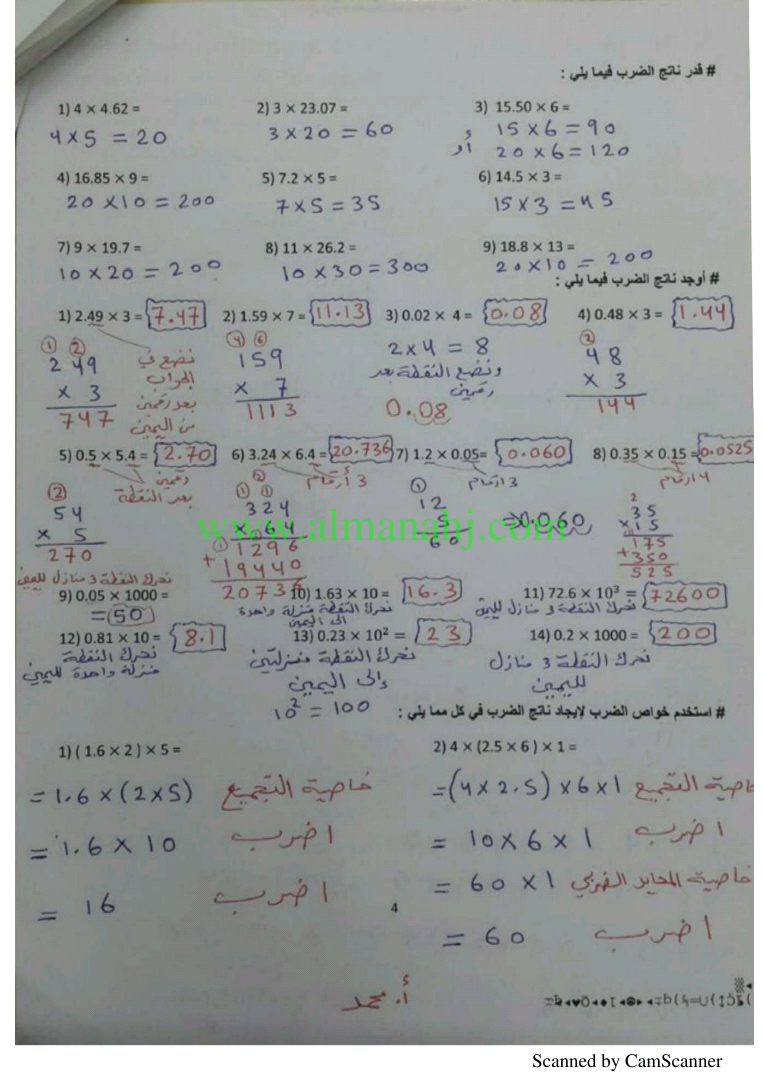 # قدر ناتج الضرب فيما يلي :
1) 4 × 4.62 = 2) 3 × 23.07 = 3) 15.50 × 6 =
4 × 5 = 20 3 × 20 = 60 15 × 6 = 90
أو 20 × 6 = 120
4) 16.85 × 9 = 5) 7.2 × 5 = 6) 14.5 × 3 =
20 × 10 = 200 7 × 5 = 35 15 × 3 = 45
7) 9 × 19.7 = 8) 11 × 26.2 = 9) 18.8 × 13 =
10 × 20 = 200 10 × 30 = 300 20 × 10 = 200
# أوجد ناتج الضرب فيما يلي :
1) 2.49 × 3 = 7.47 2) 1.59 × 7 = 11.13 3) 0.02 × 4 = 0.08 4) 0.48 × 3 = 1.44
1 2 نضع في 4 6 2 × 4 = 8 2
249 الجواب 159 ونضع النقطة بعد 48
× 3 بعد رقمين × 7 رقمين × 3
747 من اليمين 1113 0.08 144
5) 0.5 × 5.4 = 2.70 6) 3.24 × 6.4 = 20.736 7) 1.2 × 0.05 = 0.060 8) 0.35 × 0.15 = 0.0525
رقمين 3 أرقام 3 أرقام 4 أرقام
بعد النقطة
2 2 1 1 1 2
54 324 12 35
× 5 × 64 5 × 15
270 1 1296 60 0.060 175
+ 19440 + 350
20736 525
www.almanahj.com
نحرك النقطة 3 منازل لليمين
9) 0.05 × 1000 = 10) 1.63 × 10 = 16.3 11) 72.6 × 10³ = 72600
= 50 نحرك النقطة منزلة واحدة إلى اليمين نحرك النقطة 3 منازل لليمين
12) 0.81 × 10 = 8.1 13) 0.23 × 10² = 23 14) 0.2 × 1000 = 200
نحرك النقطة نحرك النقطة منزلتين نحرك النقطة 3 منازل
منزلة واحدة لليمين إلى اليمين لليمين
10² = 100
# استخدم خواص الضرب لإيجاد ناتج الضرب في كل مما يلي :
1) ( 1.6 × 2 ) × 5 = 2) 4 × (2.5 × 6 ) × 1 =
= 1.6 × (2 × 5) خاصية التجميع = (4 × 2.5) × 6 × 1 خاصية التجميع
= 1.6 × 10 اضرب = 10 × 6 × 1 اضرب
= 16 اضرب = 60 × 1 خاصية المحايد الضربي
4
= 60 اضرب
أ. محمد
Scanned by CamScanner